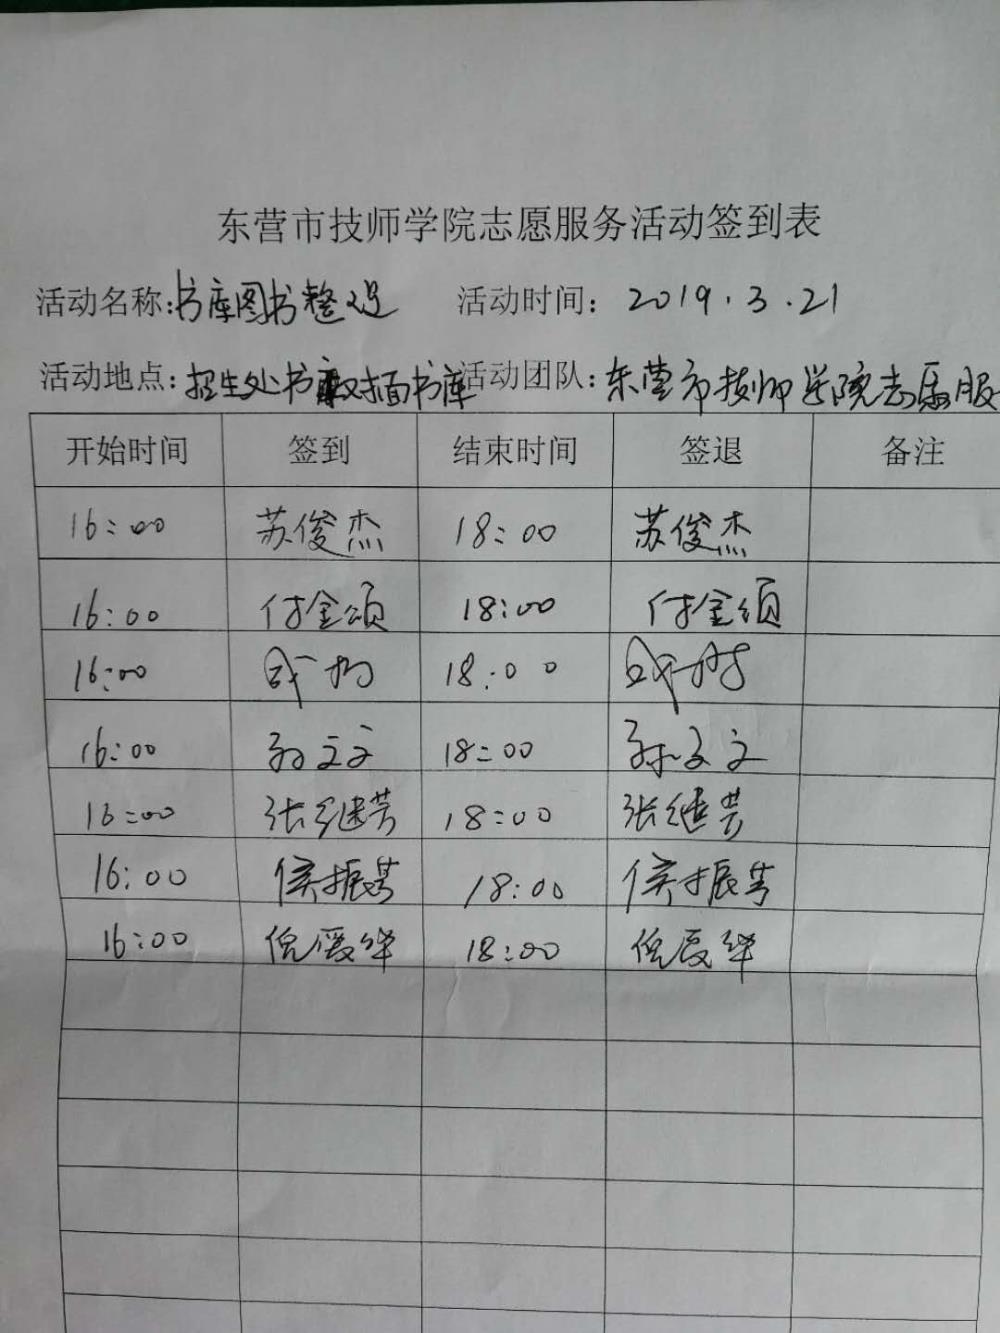 东营市技师学院志愿服务活动签到表
活动名称:书库图书整理 活动时间: 2019.3.21
活动地点:招生处对面书库 活动团队:东营市技师学院志愿服
开始时间 签到 结束时间 签退 备注
16:00 苏俊杰 18:00 苏俊杰
16:00 付金颂 18:00 付金颂
16:00 18:00
16:00 孙文文 18:00 孙文文
16:00 张继芳 18:00 张继芳
16:00 侯振芳 18:00 侯振芳
16:00 倪爱华 18:00 倪爱华